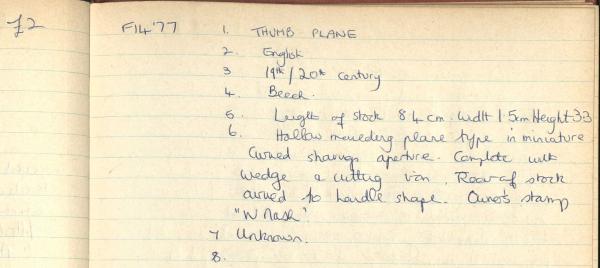 £2
F14'77
1. THUMB PLANE
2. English
3 19th/20th Century
4. Beech.
5. Length of stock 8.4cm. Width 1.5cm Height 3.3
6. Hollow moulding plane type in miniature
Curved shavings aperture. Complete with
wedge & cutting iron. Rear of stock
curved to handle shape. Owner's stamp
"W Nash".
7 Unknown.
8.